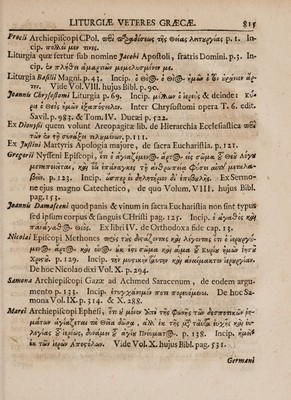 LITURGIÆ VETERES GRÆCÆ. 815
Procli Archiepiscopi CPol. περὶ παραδόσεως τῆς θείας λειτουργίας p. 1. In-
cip. πολλοὶ μέν τινες.
Liturgia quæ fertur sub nomine Jacobi Apostoli, fratris Domini. p. 3. In-
cip. ἐν πλήθει ἁμαρτιῶν μεμολυσμένον με.
Liturgia Basilii Magni. p. 43. Incip. ὁ Θεὸς ὁ Θεὸς ἡμῶν ὁ τὸν οὐράνιον ἄρ-
τον. Vide Vol. VIII. hujus Bibl. p. 90.
Joannis Chrysostomi Liturgia p. 69. Incip. μέλλων ὁ ἱερεὺς & deinde: κύ-
ριε ὁ Θεὸς ἡμῶν ἐξαπόστειλον. Inter Chrysostomi opera T. 6. edit.
Savil. p. 983. & Tom. IV. Ducæi p. 522.
Ex Dionysii quem volunt Areopagitæ lib. de Hierarchia Ecclesiastica
τῶν ἐν τῇ συνάξει τελουμένων. p. 111.
Ex Justini Martyris Apologia majore, de sacra Eucharistia. p. 121.
Gregorii Nysseni Episcopi, ὅτι ὁ ἁγιαζόμενος ἄρτος εἰς σῶμα τοῦ Θεοῦ λόγου
μεταποιεῖται, καὶ
p. 123. Incip. ὥσπερ οἱ δηλητήριον δι' ἐπιβουλῆς. Ex Sermo-
ne ejus magno Catechetico, de quo Volum. VIII. hujus Bibl.
pag. 153.
Joannis Damasceni quod panis & vinum in sacra Eucharistia non sint typus
sed ipsum corpus & sanguis CHristi pag. 125. Incip. ὁ ἀγαθὸς καὶ
πανάγαθος Θεὸς. Ex libri IV. de Orthodoxa fide cap. 13.
Nicolai Episcopi Methones πρὸς τοὺς διστάζοντας καὶ λέγοντας ὅτι ὁ ἱερουργού-
μενος ἄρτος καὶ οἶνος οὐκ ἔστι σῶμα καὶ αἷμα τοῦ Κυρίου ἡμῶν Ἰησοῦ
Χριστοῦ. p. 129. Incip. τὴν μυστικὴν ταύτην καὶ ἀναίμακτον ἱερουργίαν.
De hoc Nicolao dixi Vol. X. p. 294.
Samonæ Archiepiscopi Gazæ ad Achmed Saracenum, de eodem argu-
mento p. 132. Incip. ἐτυγχάνομέν ποτε πορευόμενοι. De hoc Sa-
mona Vol. IX. p. 314. & X. 288.
Marci Archiepiscopi Ephesi, ὅτι οὐ μόνον ἀπὸ τῆς φωνῆς τῶν δεσποτικῶν ῥη-
μάτων ἁγιάζονται τὰ θεῖα δῶρα, ἀλλ' ἐκ τῆς μετὰ ταῦτα εὐχῆς καὶ εὐ-
λογίας τοῦ ἱερέως, δυνάμει τοῦ ἁγίου Πνεύματος. p. 138. Incip. ἡμεῖς
ἐκ τῶν ἱερῶν Ἀποστόλων. Vide Vol. X. hujus Bibl. pag. 531.
Germani